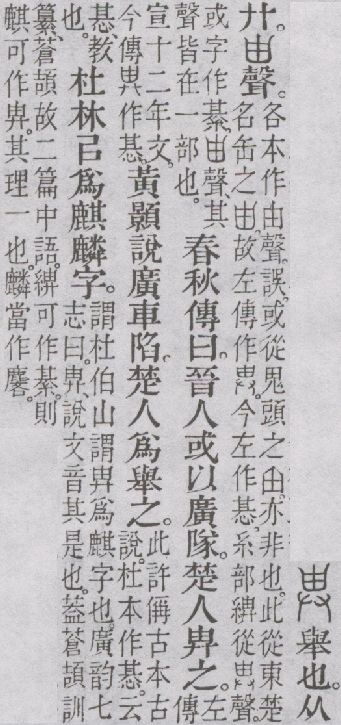 舉也。从
廾。甶聲。
各本作由聲、誤。或從鬼頭之甶。亦非也。此從東楚
名缶之甶。故左傳作畁。今左作惎。糸部綥從畁聲。
或字作綦。甶聲、其
聲皆在一部也。
春秋傳曰。晉人或以廣隊。楚人畁之。
左
傳
宣十二年文。
今傳畁作惎。
黃顥說廣車陷。楚人爲舉之。
此許偁古本古
說。杜本作惎。云
惎、教
也。
杜林㠯爲麒麟字。
謂杜伯山謂畁爲麒字也。廣韵七
志曰。畁、說文音其是也。葢蒼頡訓
纂、蒼頡故二篇中語。綥可作綦、則
麒可作畁。其理一也。麟當作麐。